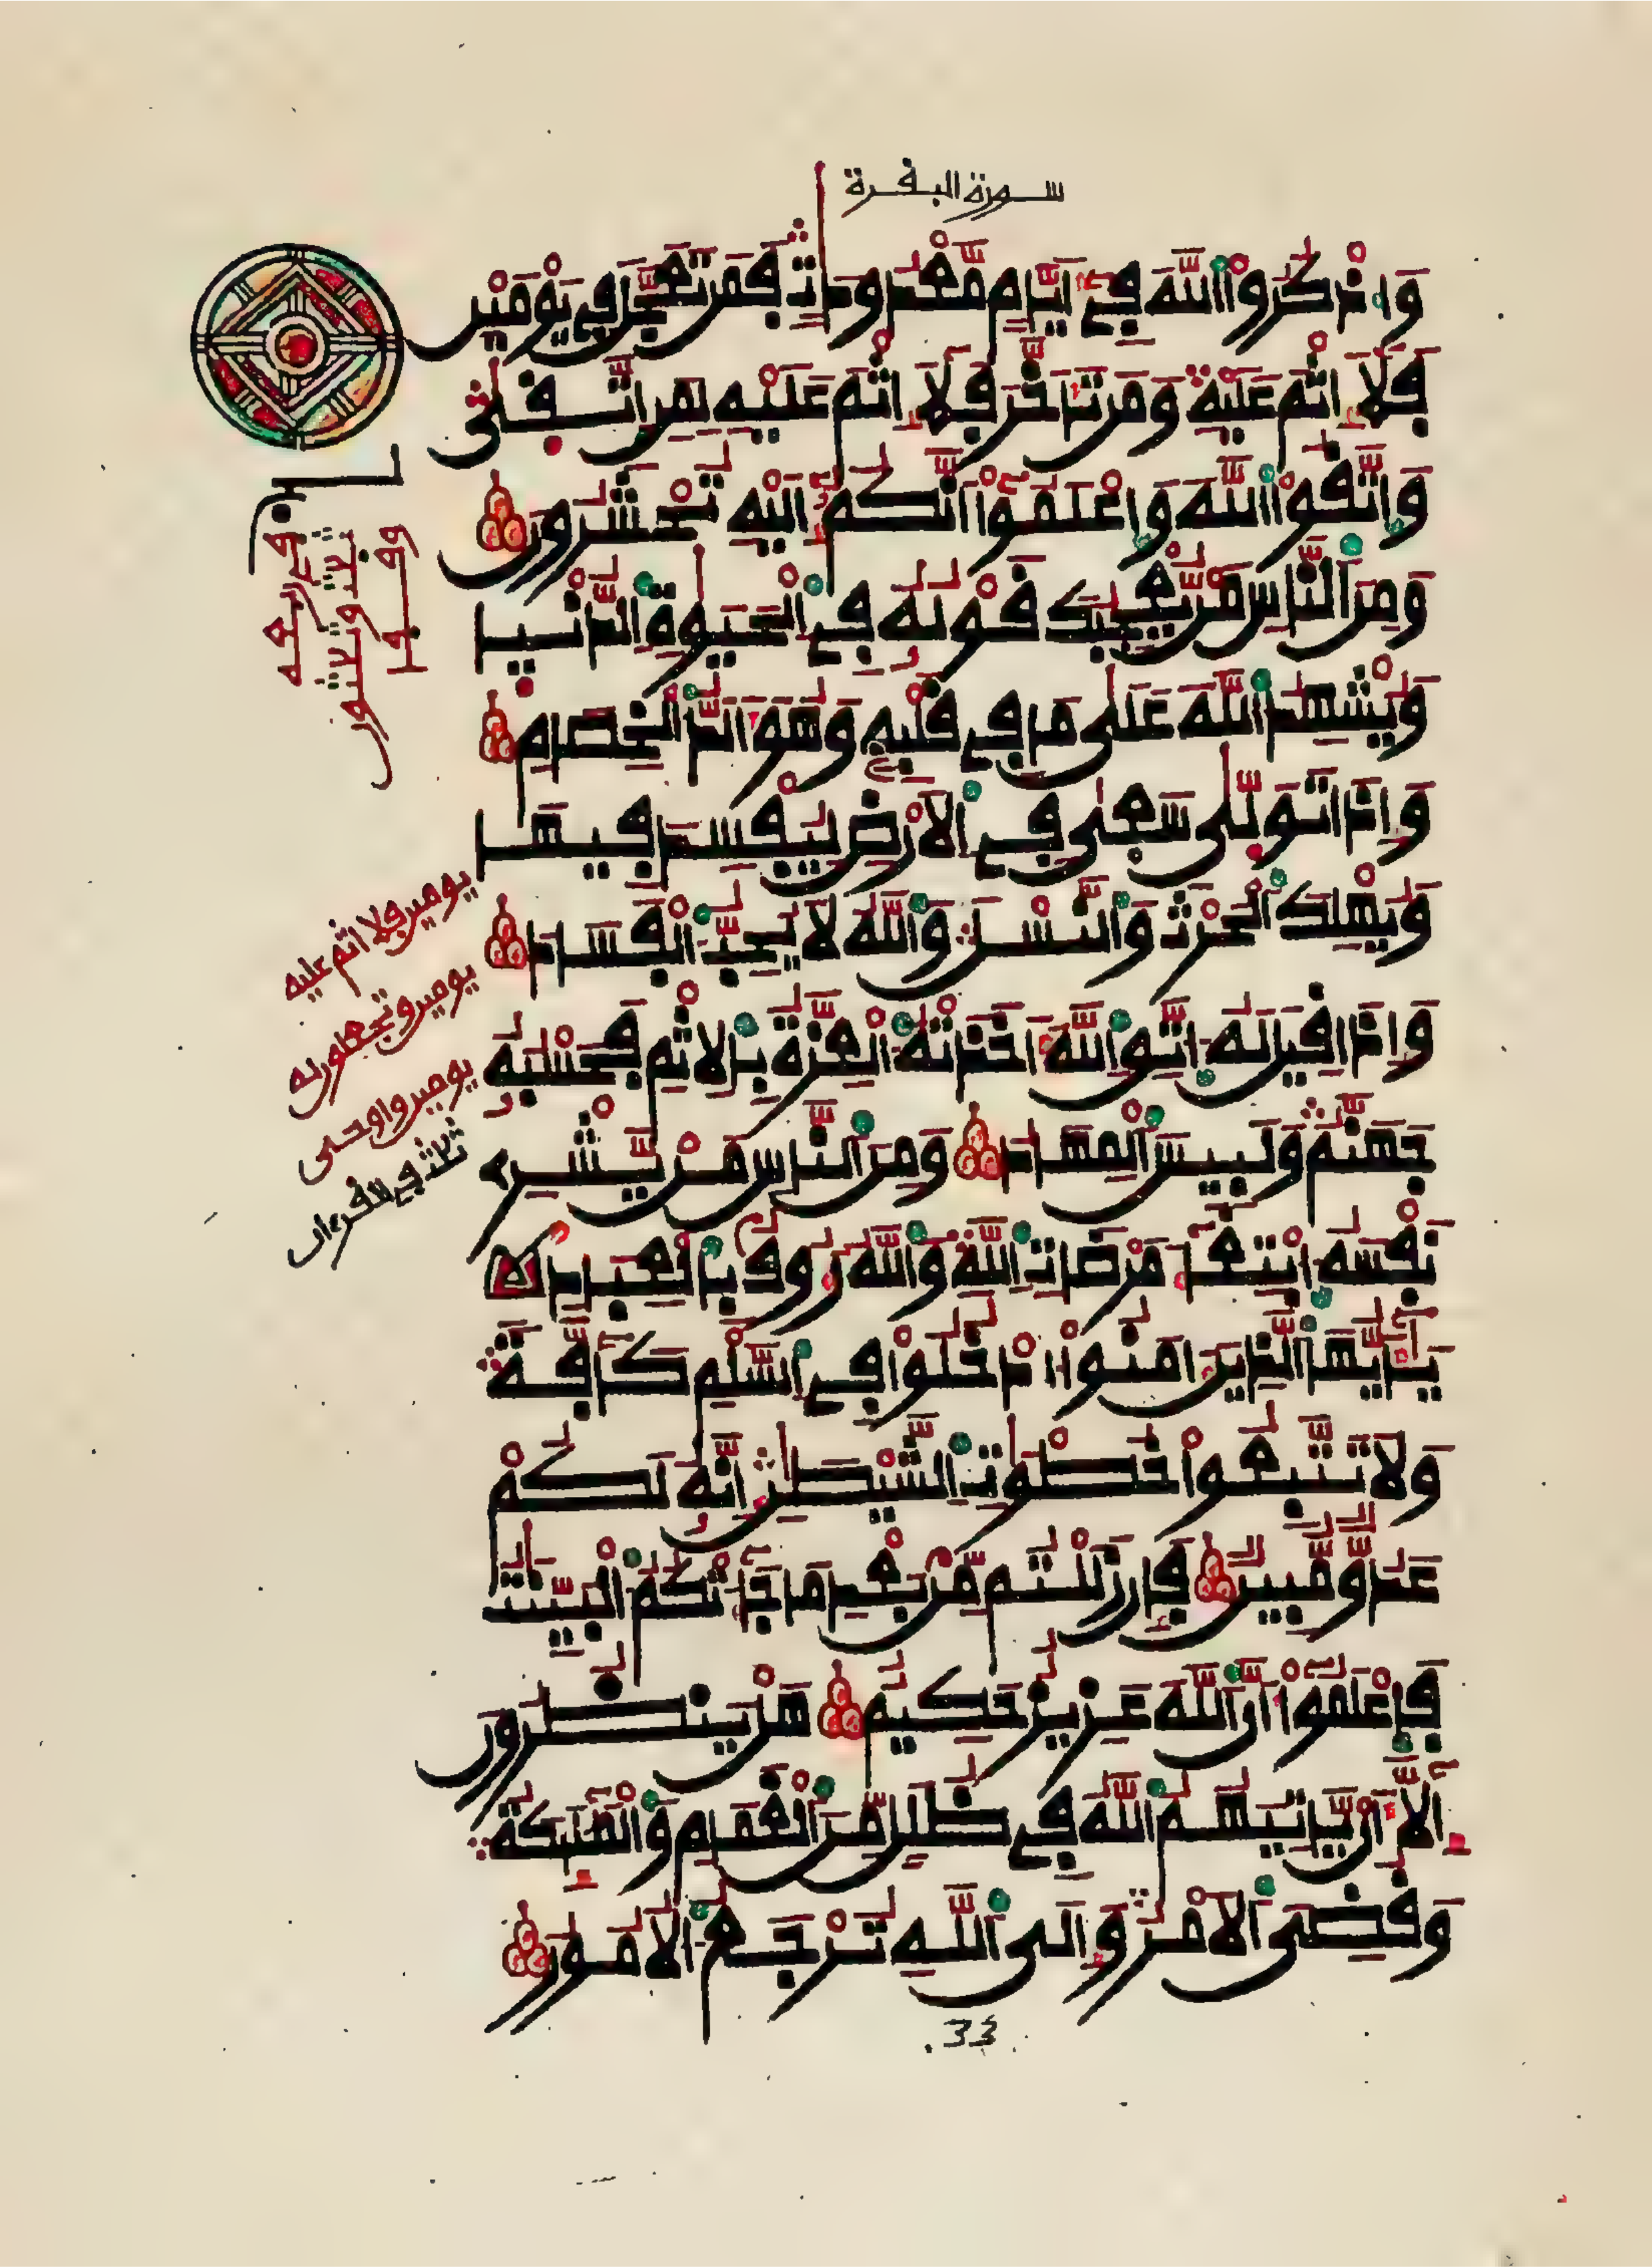 سورة البقرة
وَاذْكُرُوا اللَّهَ فِي أَيَّامٍ مَّعْدُودَاتٍ فَمَن تَعَجَّلَ فِي يَوْمَيْنِ
فَلَا إِثْمَ عَلَيْهِ وَمَن تَأَخَّرَ فَلَا إِثْمَ عَلَيْهِ لِمَنِ اتَّقَىٰ
وَاتَّقُوا اللَّهَ وَاعْلَمُوا أَنَّكُمْ إِلَيْهِ تُحْشَرُونَ
وَمِنَ النَّاسِ مَن يُعْجِبُكَ قَوْلُهُ فِي الْحَيَوٰةِ الدُّنْيَا
وَيُشْهِدُ اللَّهَ عَلَىٰ مَا فِي قَلْبِهِ وَهُوَ أَلَدُّ الْخِصَامِ
وَإِذَا تَوَلَّىٰ سَعَىٰ فِي الْأَرْضِ لِيُفْسِدَ فِيهَا
وَيُهْلِكَ الْحَرْثَ وَالنَّسْلَ وَاللَّهُ لَا يُحِبُّ الْفَسَادَ
وَإِذَا قِيلَ لَهُ اتَّقِ اللَّهَ أَخَذَتْهُ الْعِزَّةُ بِالْإِثْمِ فَحَسْبُهُ
جَهَنَّمُ وَلَبِيسَ الْمِهَادُ وَمِنَ النَّاسِ مَنْ يَّشْرِي
نَفْسَهُ ابْتِغَاءَ مَرْضَاتِ اللَّهِ وَاللَّهُ رَءُوفٌ بِالْعِبَادِ
يَا أَيُّهَا الَّذِينَ آمَنُوا ادْخُلُوا فِي السَّلْمِ كَافَّةً
وَلَا تَتَّبِعُوا خُطْوَٰتِ الشَّيْطَٰنِ إِنَّهُ لَكُمْ
عَدُوٌّ مُّبِينٌ فَإِن زَلَلْتُم مِّنْ بَعْدِ مَا جَاءَتْكُمُ الْبَيِّنَٰتُ
فَاعْلَمُوا أَنَّ اللَّهَ عَزِيزٌ حَكِيمٌ هَلْ يَنظُرُونَ
إِلَّا أَنْ يَّأْتِيَهُمُ اللَّهُ فِي ظُلَلٍ مِّنَ الْغَمَامِ وَالْمَلَٰئِكَةُ
وَقُضِيَ الْأَمْرُ وَإِلَى اللَّهِ تُرْجَعُ الْأُمُورُ
يومين فلا إثم عليه
يومين وتجعلون له
يومين وأوحى
ثلث في القرءان
33